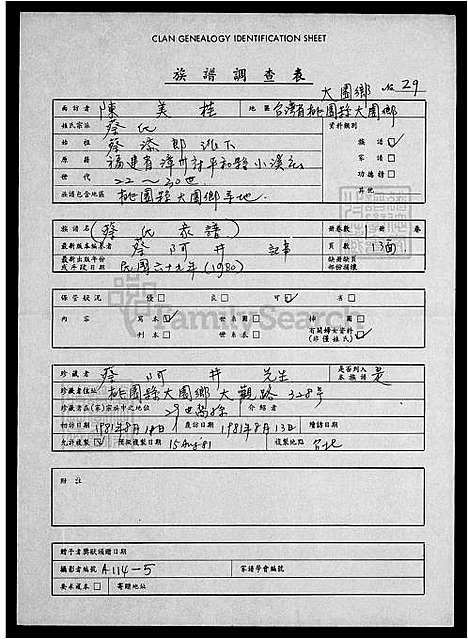 CLAN GENEALOGY IDENTIFICATION SHEET
族譜調查表
大園鄉 No 29
面訪者 陳美桂 地區 台灣省桃園縣大園鄉
姓氏宗派 蔡氏 資料類別
始祖 蔡添郎 派下 族譜
原籍 福建省漳州府平和縣小溪 家譜
世代 22~30世 功德譜
族譜包含地區 桃園縣大園鄉等地 其他
族譜名 (蔡氏族譜) 冊卷數 1 冊 卷
最新版本編纂者 蔡阿井 頁數 13面
最新出版年份或手段日期 民國六十九年(1980) 缺冊缺頁部份損壞
保管狀況 優 良 可 劣
內容 寫本 世系圖 神圖 有關婦女資料
刊本 世系表 (非僅姓氏)
珍藏者 蔡阿井 先生 是否列入本族譜 是
珍藏者住址 桃園縣大園鄉大觀路328号
珍藏者在(家)宗族中之地位 29世裔孫 介紹者
初訪日期 1981年8月12日 最訪日期 1981年8月13日 續訪日期
允許複製 預擬複製日期 15 Aug 81 複製地點 台北
附註
贈予者獎狀頒贈日期
攝影者編號 A114-5 家譜學會編號
要求複本 寄贈地址
FamilySearch